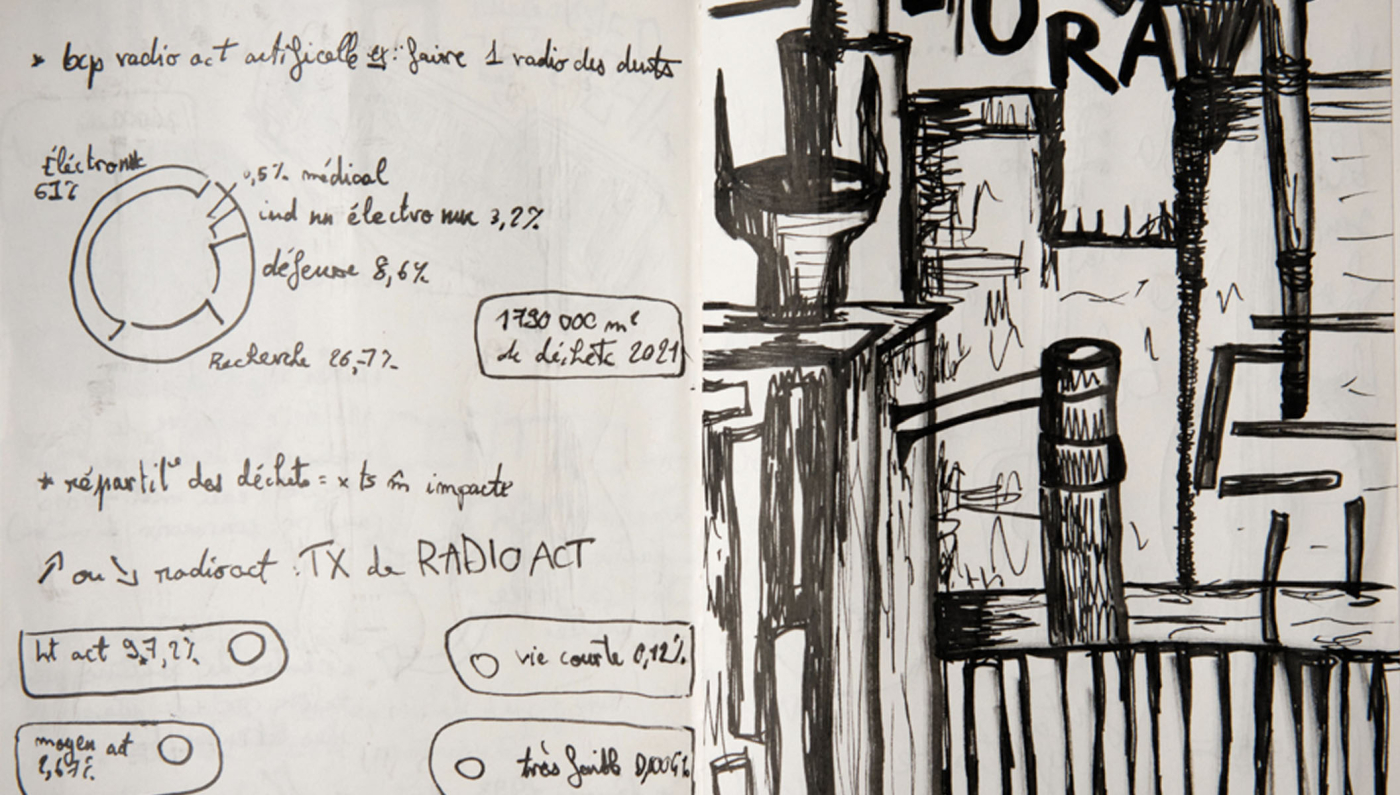 * bcp radio act artificielle ex: faire 1 radio des dents
Éléctronik
61%
0,5% médical
ind nn électro nuc 3,2%
défense 8,6%
Recherche 26,7%
1790 000 m³
de déchets 2021
* répartit° des déchets = x ts m̂ impacts
↗ ou ↘ radioact : TX de RADIO ACT
ht act 97,2%
vie courte 0,12%
moyen act
2,67%
très faible
ORA